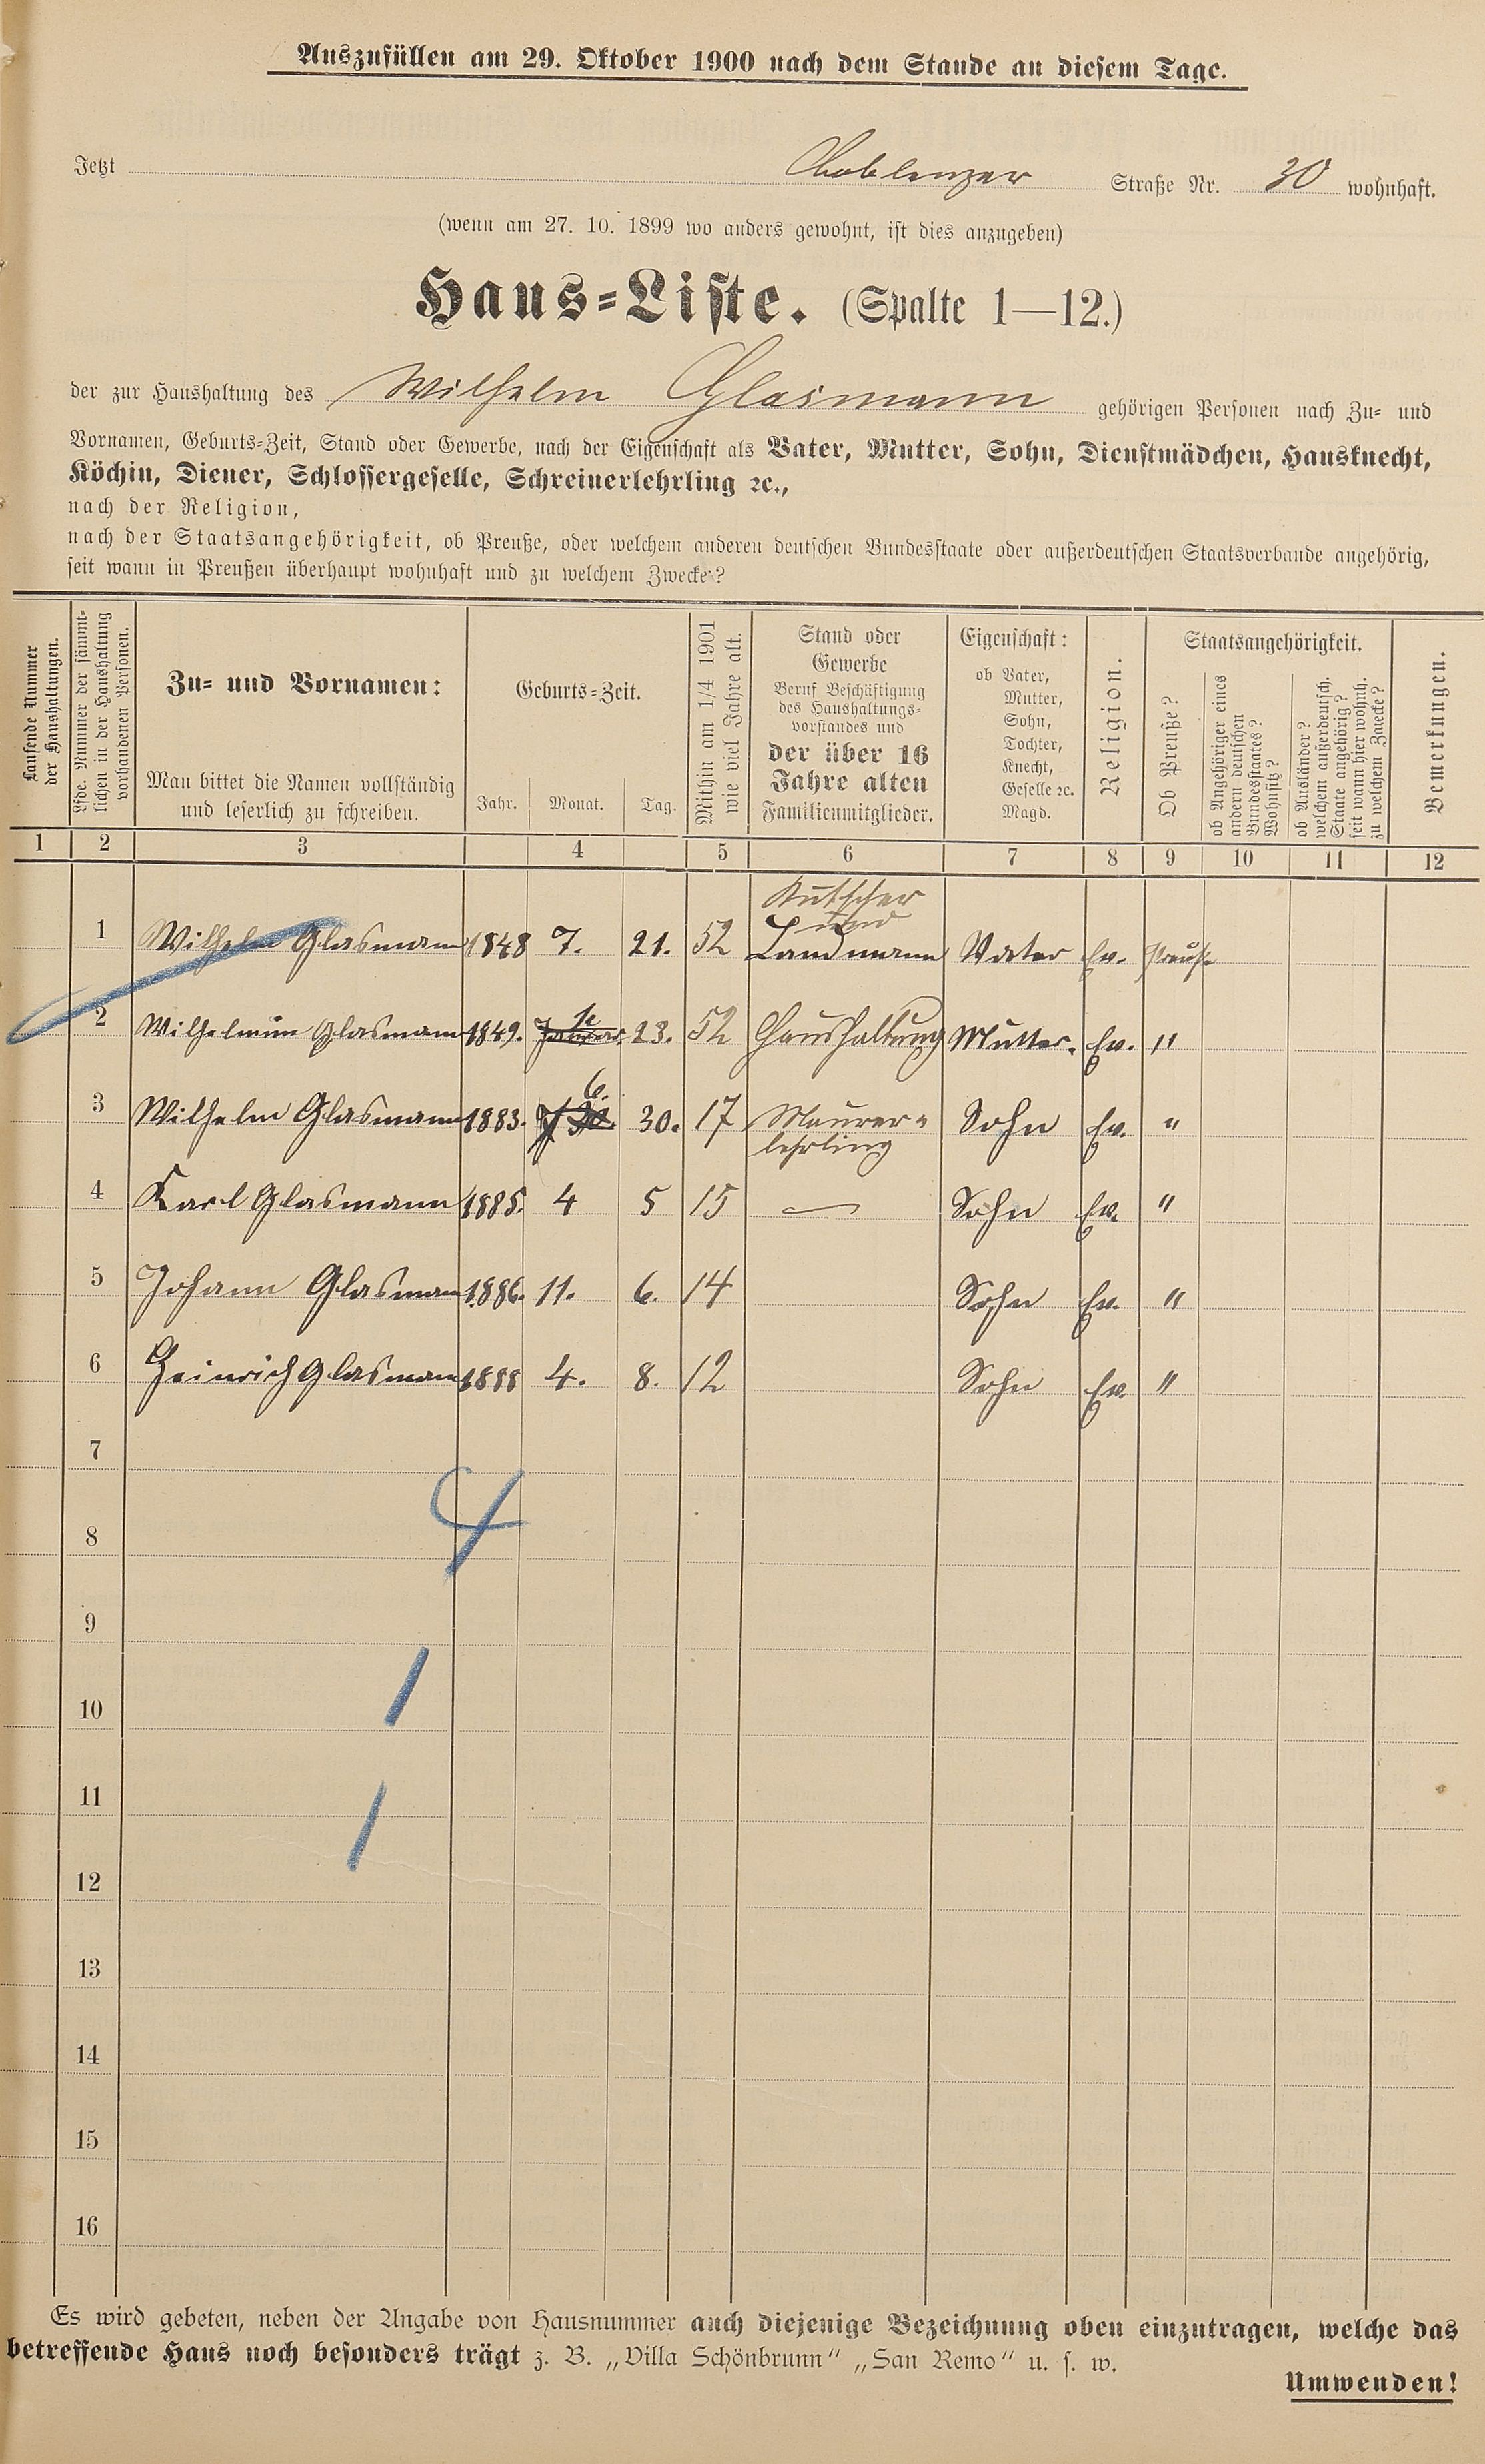 Auszufüllen am 29. Oktober 1900 nach dem Stande an diesem Tage.
Jetzt Coblenzer Straße Nr. 30 wohnhaft.
(wenn am 27. 10. 1899 wo anders gewohnt, ist dies anzugeben)
Haus-Liste. (Spalte 1—12.)
der zur Haushaltung des Wilhelm Glasmann gehörigen Personen nach Zu- und
Vornamen, Geburts-Zeit, Stand oder Gewerbe, nach der Eigenschaft als Vater, Mutter, Sohn, Dienstmädchen, Hausknecht,
Köchin, Diener, Schlossergeselle, Schreinerlehrling ꝛc.,
nach der Religion,
nach der Staatsangehörigkeit, ob Preuße, oder welchem anderen deutschen Bundesstaate oder außerdeutschen Staatsverbande angehörig,
seit wann in Preußen überhaupt wohnhaft und zu welchem Zwecke?
Laufende Nummer
der Haushaltungen.
Lfde. Nummer der sämmt-
lichen in der Haushaltung
vorhandenen Personen.
Zu- und Vornamen:
Man bittet die Namen vollständig
und leserlich zu schreiben.
Geburts-Zeit.
Jahr. Monat. Tag.
Mithin am 1/4 1901
wie viel Jahre alt.
Stand oder
Gewerbe
Beruf Beschäftigung
des Haushaltungs-
vorstandes und
der über 16
Jahre alten
Familienmitglieder.
Eigenschaft:
ob Vater,
Mutter,
Sohn,
Tochter,
Knecht,
Geselle ꝛc.
Magd.
Religion.
Staatsangehörigkeit.
Ob Preuße?
ob Angehöriger eines
andern deutschen
Bundesstaates?
Wohnsitz?
ob Ausländer?
welchem außerdeutsch.
Staate angehörig?
seit wann hier wohnh.
zu welchem Zwecke?
Bemerkungen.
1 2 3 4 5 6 7 8 9 10 11 12
Kutscher
und
1 Wilhelm Glasmann 1848 7. 21. 52 Landmann Vater Ev. Preuße
2 Wilhelmine Glasmann 1849. 23. 52 Haushaltung Mutter. Ev. "
3 Wilhelm Glasmann 1883. 6. 30. 17 Maurer- Sohn Ev. "
lehrling
4 Karl Glasmann 1885. 4 5 15 — Sohn Ev. "
5 Johann Glasmann 1886. 11. 6. 14 Sohn Ev. "
6 Heinrich Glasmann 1888 4. 8. 12 Sohn Ev. "
7
4
8
9
1
10
11
1
12
13
14
15
16
Es wird gebeten, neben der Angabe von Hausnummer auch diejenige Bezeichnung oben einzutragen, welche das
betreffende Haus noch besonders trägt z. B. „Villa Schönbrunn" „San Remo" u. s. w.
Umwenden!